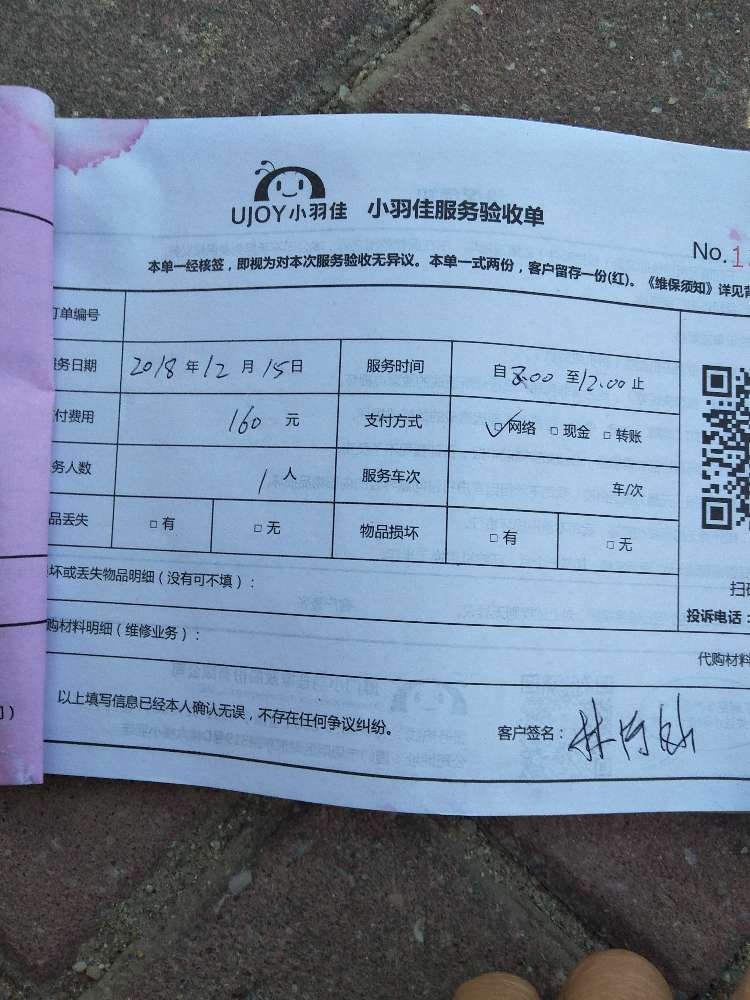 UJOY小羽佳 小羽佳服务验收单
No.1
本单一经核签，即视为对本次服务验收无异议。本单一式两份，客户留存一份(红)。《维保须知》详见背
订单编号
服务日期 2018年12月15日 服务时间 自8:00至12:00止
付费用 160元 支付方式 ✓□网络 □现金 □转账
务人数 1人 服务车次 车/次
品丢失 □有 □无 物品损坏 □有 □无
坏或丢失物品明细（没有可不填）：
扫码
投诉电话：
购材料明细（维修业务）：
代购材料
以上填写信息已经本人确认无误，不存在任何争议纠纷。
客户签名：